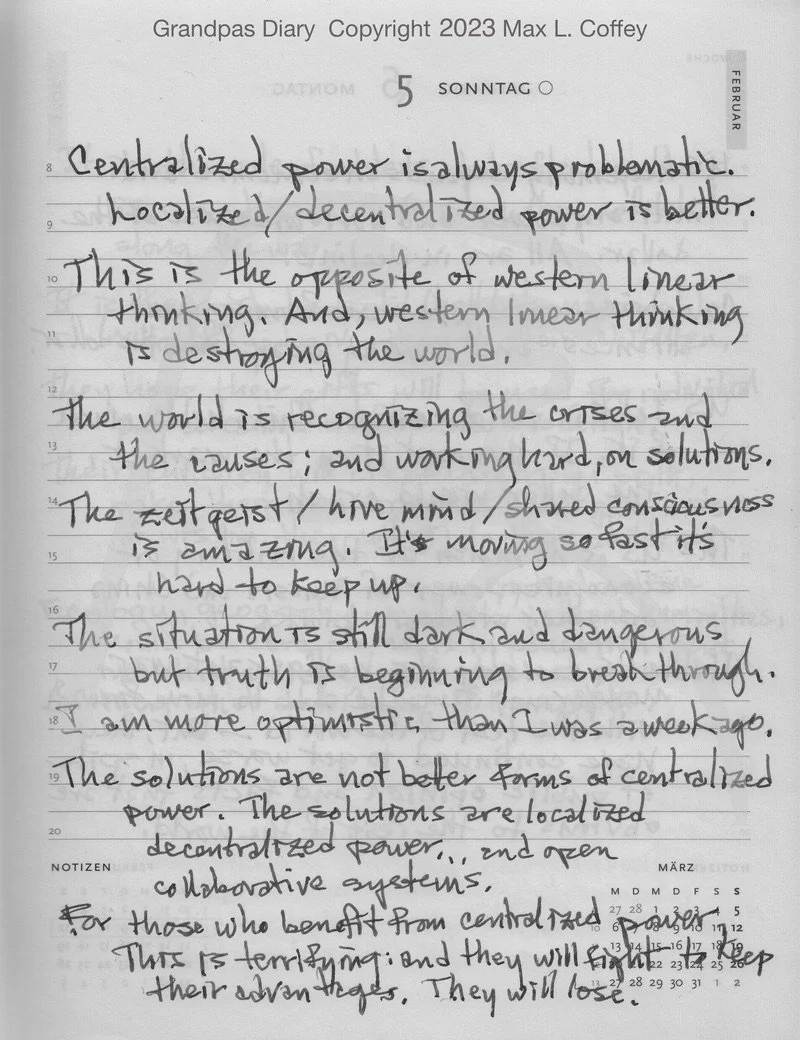 Grandpas Diary Copyright 2023 Max L. Coffey
5 SONNTAG
FEBRUAR
8 Centralized power is always problematic.
Localized/decentralized power is better.
9
10 This is the opposite of western linear
thinking. And, western linear thinking
11
is destroying the world.
12
The world is recognizing the crises and
13 the causes; and working hard, on solutions.
14 The zeitgeist / hive mind / shared consciousness
15 is amazing. It's moving so fast it's
hard to keep up.
16
The situation is still dark and dangerous
17 but truth is beginning to break through.
18 I am more optimistic than I was a week ago.
19 The solutions are not better forms of centralized
power. The solutions are localized
20
decentralized power... and open
NOTIZEN
MÄRZ
collaborative systems.
M D M D F S S
27 28 1 2 3 4 5
For those who benefit from centralized power
6 8 9 10 11 12
This is terrifying: and they will fight to keep
13 14 15 16 17 18 19
22 23 24 25 26
their advantages. They will lose.
27 28 29 30 31 1 2